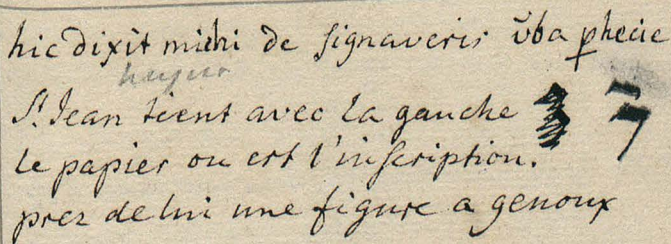 hic dixit michi de signaveris ūba ꝓhecie
hujus
St. Jean tient avec la gauche 7
le papier ou est l'inscription.
prez de lui une figure a genoux